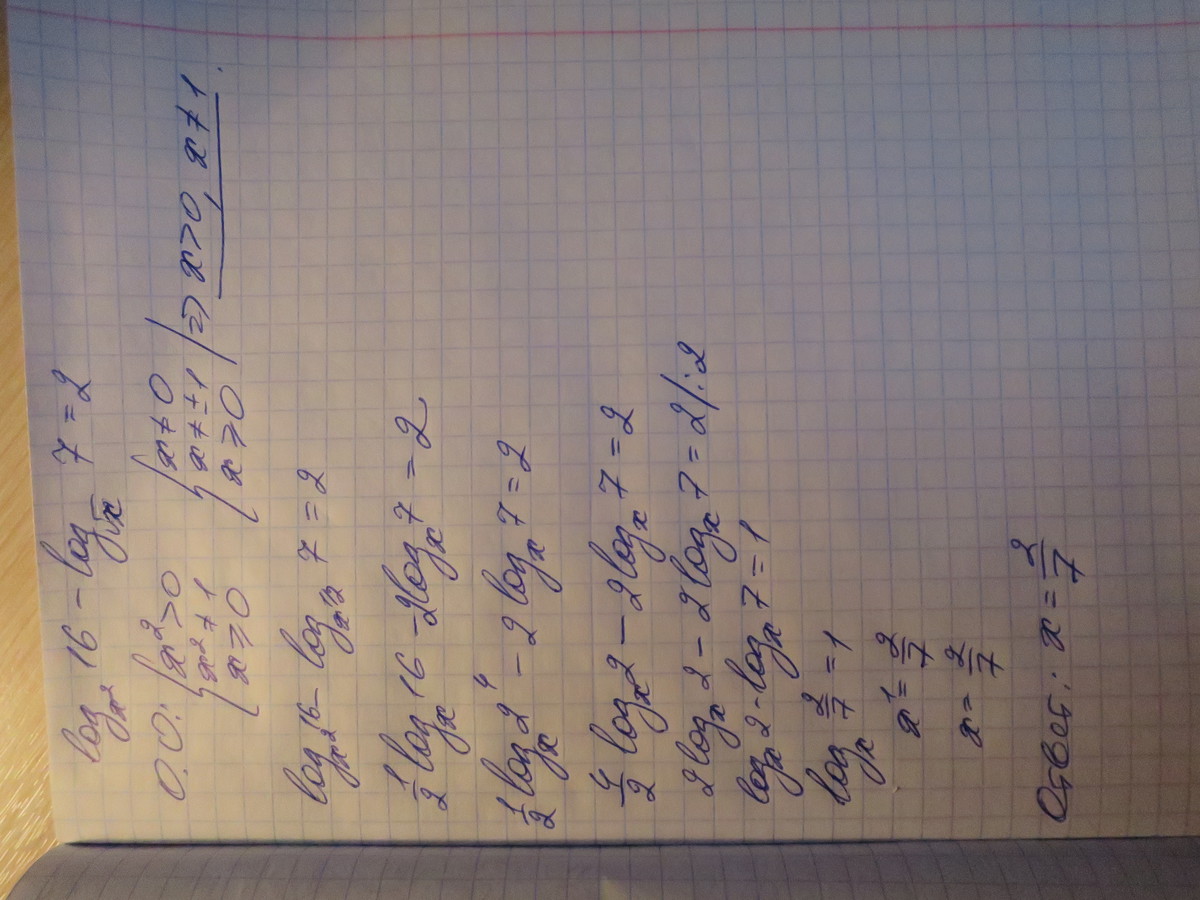 log_{x^2} 16 - log_{√x} 7 = 2
О.О.: { x^2 > 0 { x ≠ 0
x^2 ≠ 1 x ≠ ±1 | => x > 0, x ≠ 1.
x ⩾ 0 x ⩾ 0
log_{x^2} 16 - log_{x^{1/2}} 7 = 2
1/2 log_x 16 - 2 log_x 7 = 2
1/2 log_x 2^4 - 2 log_x 7 = 2
4/2 log_x 2 - 2 log_x 7 = 2
2 log_x 2 - 2 log_x 7 = 2 /:2
log_x 2 - log_x 7 = 1
log_x 2/7 = 1
x^1 = 2/7
x = 2/7
Ответ: x = 2/7